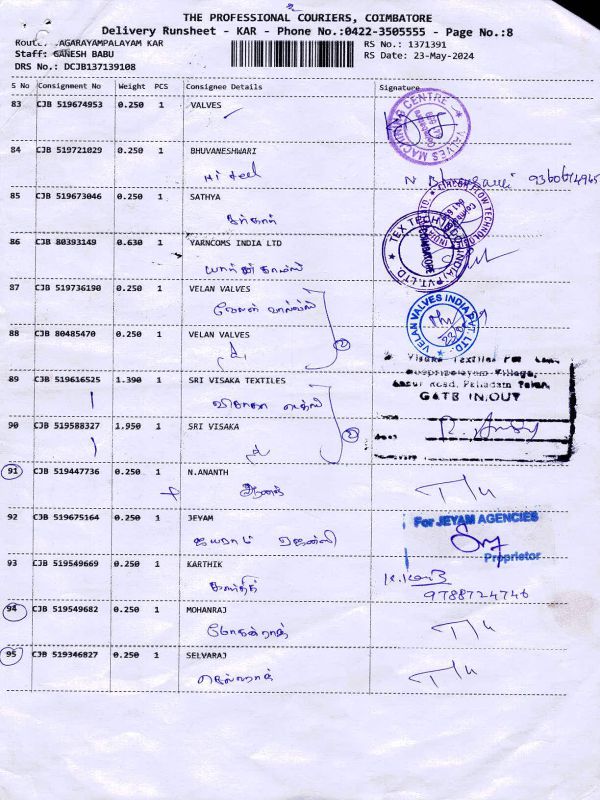 THE PROFESSIONAL COURIERS, COIMBATORE
Delivery Runsheet - KAR - Phone No.:0422-3505555 - Page No.:8
Route: JAGARAYAMPALAYAM KAR RS No.: 1371391
Staff: GANESH BABU RS Date: 23-May-2024
DRS No.: DCJB137139108
S No Consignment No Weight PCS Consignee Details Signature
83 CJB 519674953 0.250 1 VALVES
VALVES MACHINING CENTRE
84 CJB 519721029 0.250 1 BHUVANESHWARI
Hi teel
85 CJB 519673046 0.250 1 SATHYA
86 CJB 80393149 0.630 1 YARNCOMS INDIA LTD
TEX TECH INDIA PVT. LTD.
COIMBATORE
87 CJB 519736190 0.250 1 VELAN VALVES
வேலன் வால்வ்ஸ்
88 CJB 80485470 0.250 1 VELAN VALVES
2
VELAN VALVES INDIA PVT. LTD.
89 CJB 519616525 1.390 1 SRI VISAKA TEXTILES
Visaka Textiles
GATE IN/OUT
90 CJB 519588327 1.950 1 SRI VISAKA
2
91 CJB 519447736 0.250 1 N.ANANTH
ஆனந்த் T/u
92 CJB 519675164 0.250 1 JEYAM
For JEYAM AGENCIES
Proprietor
93 CJB 519549669 0.250 1 KARTHIK
கார்த்திக்
9788724746
94 CJB 519549682 0.250 1 MOHANRAJ
மோகன்ராஜ் T/u
95 CJB 519346827 0.250 1 SELVARAJ
செல்வராஜ் T/u